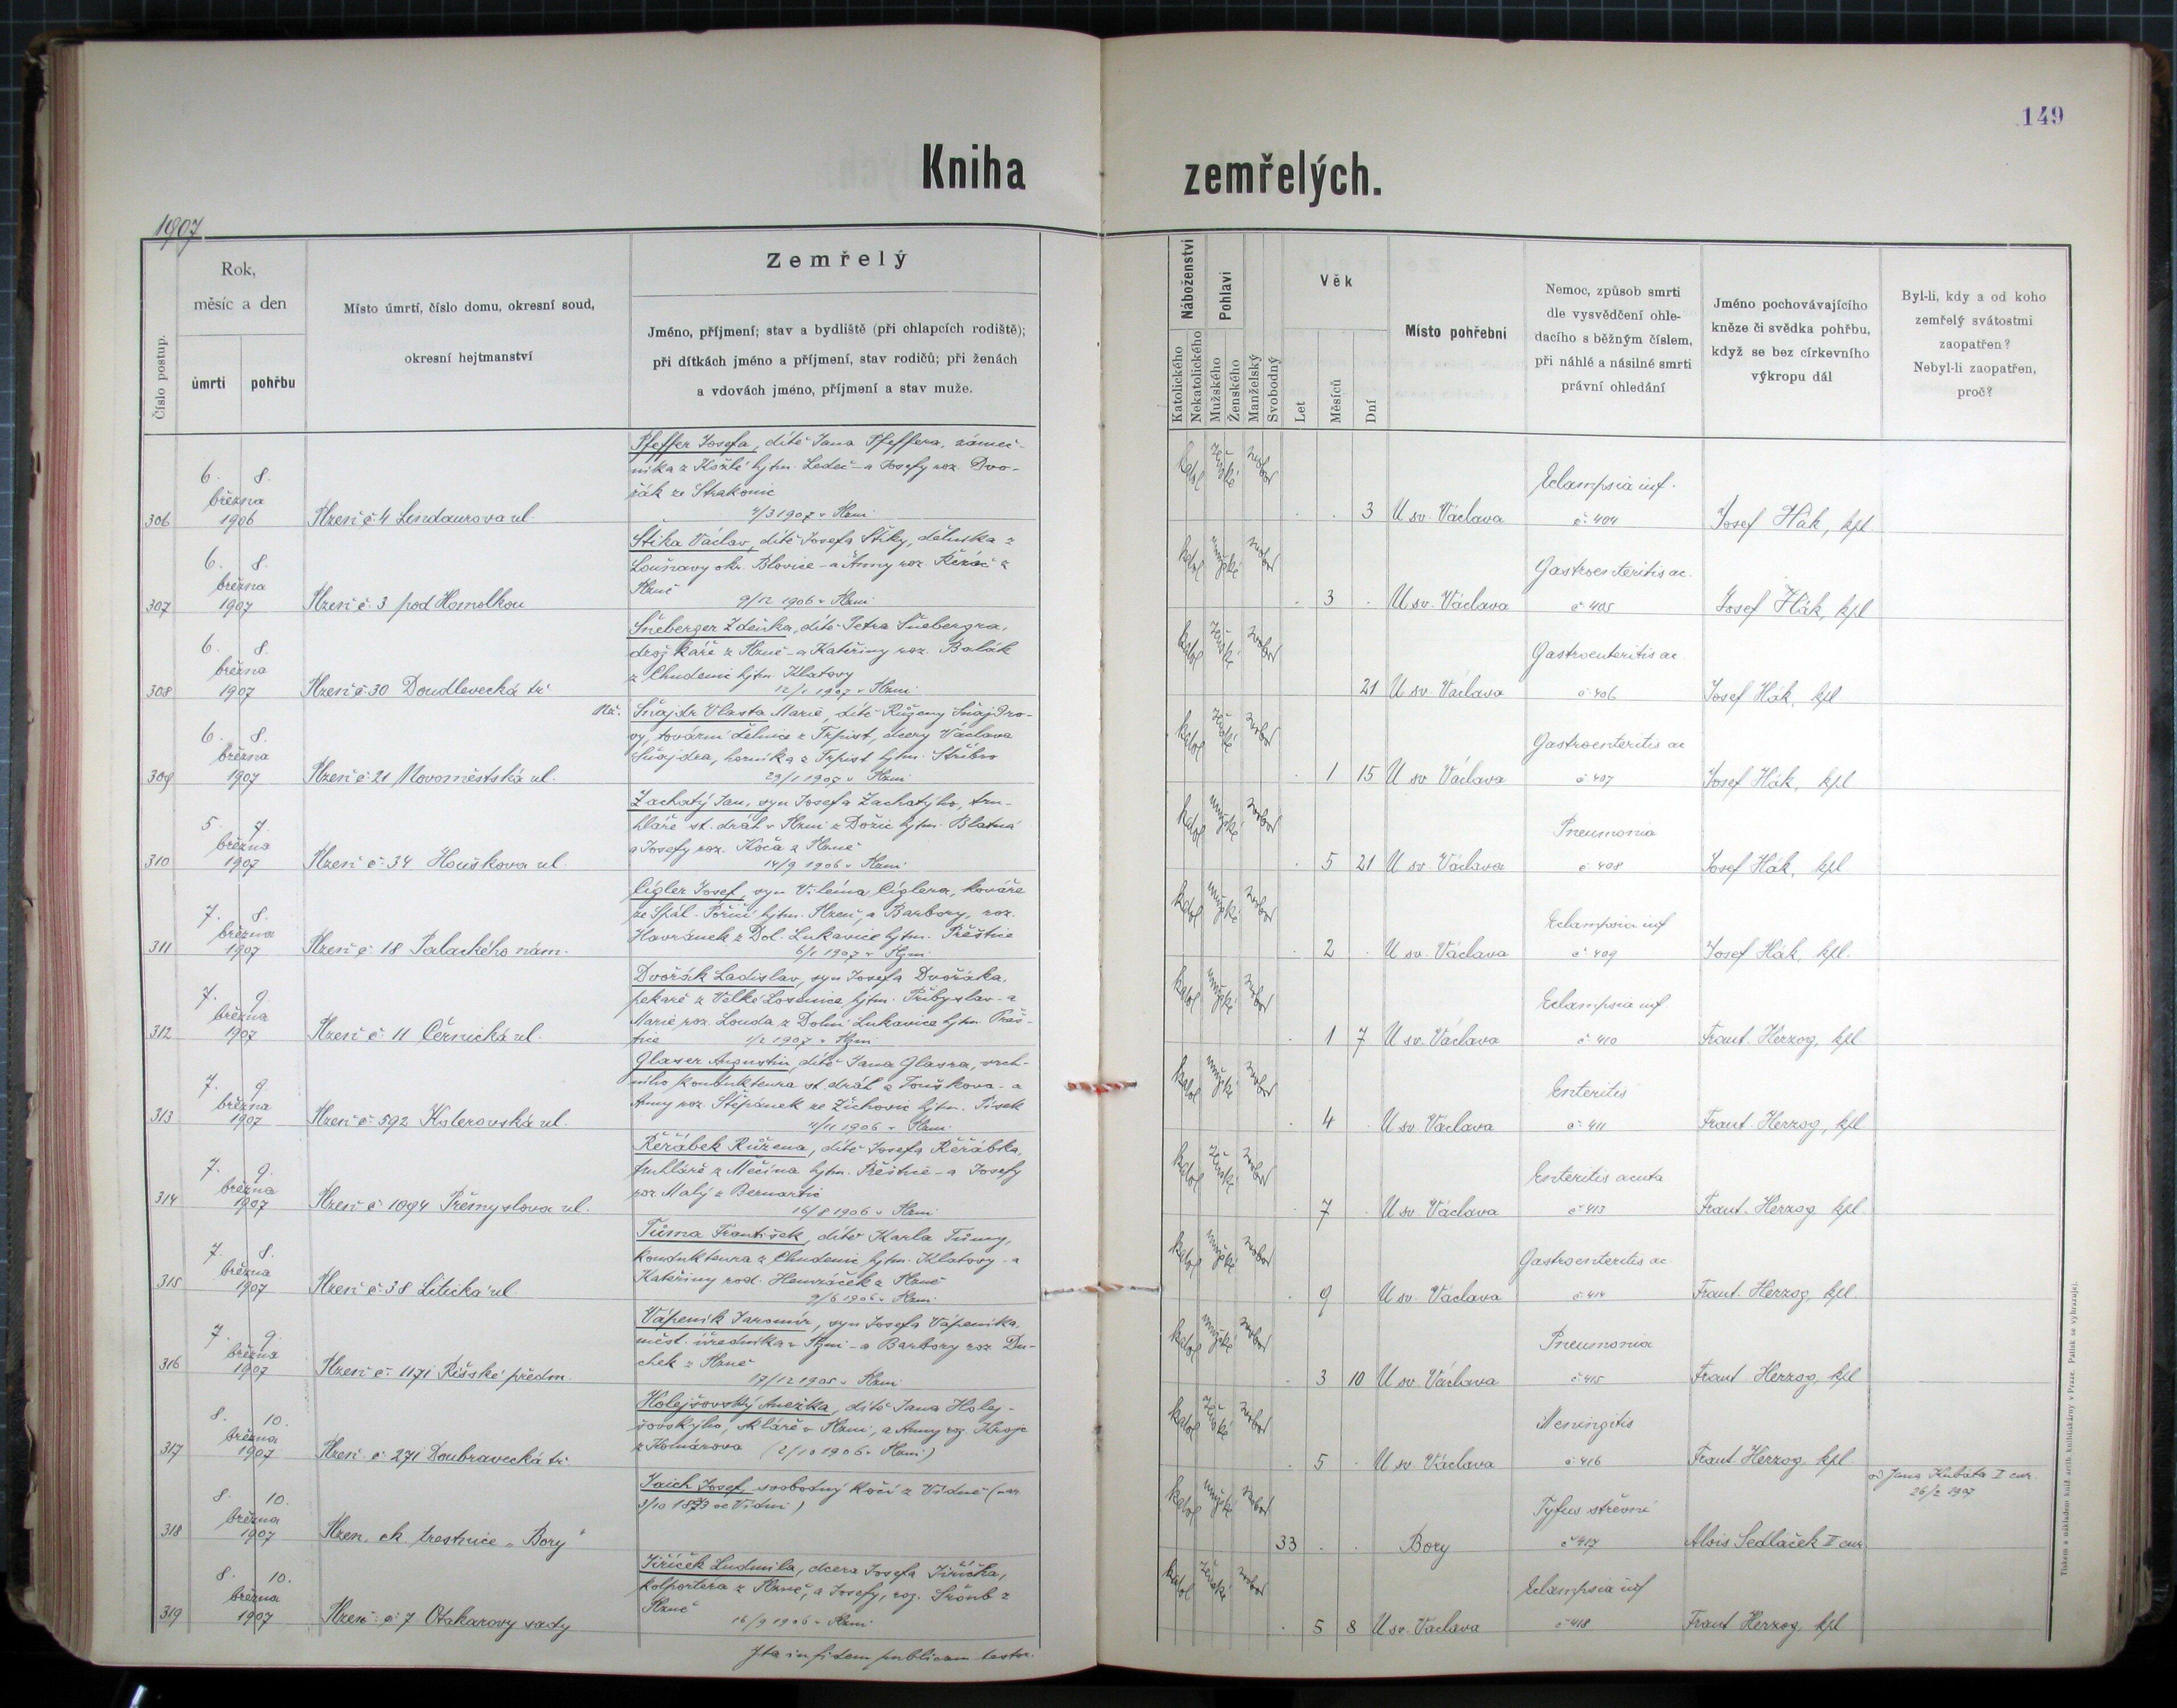 149
Kniha zemřelých.
1907
Číslo postup.
Rok,
měsíc a den
úmrtí
pohřbu
Místo úmrtí, číslo domu, okresní soud,
okresní hejtmanství
Zemřelý
Jméno, příjmení; stav a bydliště (při chlapcích rodiště);
při dítkách jméno a příjmení, stav rodičů; při ženách
a vdovách jméno, příjmení a stav muže.
Náboženství
Katolického
Nekatolického
Pohlaví
Mužského
Ženského
Manželský
Svobodný
Věk
Let
Měsíců
Dní
Místo pohřební
Nemoc, způsob smrti
dle vysvědčení ohle-
dacího s běžným číslem,
při náhlé a násilné smrti
právní ohledání
Jméno pochovávajícího
kněze či svědka pohřbu,
když se bez církevního
výkropu dál
Byl-li, kdy a od koho
zemřelý svátostmi
zaopatřen?
Nebyl-li zaopatřen,
proč?
306
6. 8.
března
1906
Plzeň č. 4 Lindaurova ul.
Pfeffer Josefa, dítě Jana Pfeffera, zámeč-
níka z Kožlí hjtm. Ledeč - a Josefy roz. Dvo-
řák ze Strakonic
4/3 1907 v Plzni
katol ženské svobod
3
U sv. Václava
Eclampsia inf.
č. 404
Josef Hák, kpl
307
6. 8.
března
1907
Plzeň č. 3 pod Homolkou
Štika Václav, dítě Josefa Štiky, dělníka z
Louňavy okr. Blovice - a Anny roz. Řezáč z
Plzně
9/12 1906 v Plzni
katol mužské svobod
3
U sv. Václava
Gastroenteritis ac.
č. 405
Josef Hák, kpl
308
6. 8.
března
1907
Plzeň č. 30 Doudlevecká tř.
Šneberger Zdeňka, dítě Petra Šnebergra,
drožkáře z Plzně - a Kateřiny roz. Balák
z Chudenic hjtm. Klatovy
12/1 1907 v Plzni
katol ženské svobod
21
U sv. Václava
Gastroenteritis ac
č. 406
Josef Hák, kpl
309
6. 8.
března
1907
Plzeň č. 21 Novoměstská ul.
Nž.
Šnajdr Vlasta Marie, dítě Růženy Šnajdro-
vy, tovární dělnice z Trpist, dcery Václava
Šnajdra, horníka z Trpist hjtm. Stříbro
29/1 1907 v Plzni
katol ženské svobod
1 15
U sv Václava
Gastroenteritis ac
č. 407
Josef Hák, kpl
310
5. 7.
března
1907
Plzeň č. 34 Houškova ul.
Zachatý Jan, syn Josefa Zachatýho, tru-
hláře st. drah v Plzni z Dožic hjtm. Blatná
a Josefy roz. Koča z Plzně
14/9 1906 v Plzni
katol mužské svobod
5 21
U sv Václava
Pneumonia
č 408
Josef Hák, kpl
311
7. 8.
března
1907
Plzeň č. 18 Palackého nám.
Cígler Josef, syn Viléma Cíglera, kováře
ze Spál. Poříčí hjtm. Plzeň, a Barbory, roz.
Havránek z Dol. Lukavice hjtm. Přeštice
6/1 1907 v Plzni
katol mužské svobod
2
U sv. Václava
Eclampsia inf
č. 409
Josef Hák, kpl.
312
7. 9.
března
1907
Plzeň č. 11 Černická ul.
Dvořák Ladislav, syn Josefa Dvořáka,
pekaře z Velké Losenice hjtm. Přibyslav - a
Marie roz. Louda z Dolní Lukavice hjtm. Přeš-
tice 1/2 1907 v Plzni
katol mužské svobod
1 7
U sv. Václava
Eclampsia inf
č. 410
Frant. Herzog, kpl
313
7. 9.
března
1907
Plzeň č. 592 Koterovská ul.
Glaser Augustin, dítě Jana Glasra, vrch-
ního kondukteura st. drah z Touškova - a
Anny roz. Štěpánek ze Žichovic hjtm. Písek
4/11 1906 v Plzni
katol mužské svobod
4
U sv. Václava
Enteritis
č. 411
Frant. Herzog, kpl
314
7. 9.
března
1907
Plzeň č 1094 Přemyslova ul.
Řeřábek Růžena, dítě Josefa Řeřábka,
truhláře z Měčína hjtm. Přeštice - a Josefy
roz. Malý z Bernartic
16/8 1906 v Plzni
katol ženské svobod
7
U sv. Václava
Enteritis acuta
č 413
Frant. Herzog kpl.
315
7. 8.
března
1907
Plzeň č. 38 Litická ul.
Tůma František, dítě Karla Tůmy,
kondukteura z Chudenic hjtm. Klatovy - a
Kateřiny rod. z Plzně
9/6 1906 v Plzni
katol mužské svobod
9
U sv. Václava
Gastroenteritis ac.
č. 414
Frant. Herzog, kpl.
316
7. 9.
března
1907
Plzeň č. 1171 Říšské předm.
Vápeník Jaromír, syn Josefa Vápeníka,
měst. úředníka v Plzni - a Barbory roz Du-
chek z Plzně
17/12 1905 v Plzni
katol mužské svobod
3 10
U sv. Václava
Pneumonia
č. 415
Frant Herzog, kpl
317
8. 10.
března
1907
Plzeň č. 271 Doubravecká tř.
Holejšovský Anežka, dítě Jana Holej-
šovskýho, skláře v Plzni, a Anny roz. Kroje
z Komárova (2/10 1906 v Plzni)
katol ženské svobod
5
U sv. Václava
Meningitis
č. 416
Frant Herzog kpl
318
8. 10.
března
1907
Plzeň, ck. trestnice „Bory"
Jaich Josef, svobodný kočí z Vídně (nar.
3/10 1873 ve Vídni)
katol mužské svobod
33
Bory
Tyfus střevní
č 417
Alois Sedláček II cur
od Jana Kubáta I cur.
26/2 1907
319
8. 10.
března
1907
Plzeň č. 7 Otakarovy sady
Jiříček Ludmila, dcera Josefa Jiříčka,
kolportera z Plzně, a Josefy, roz. Šroub z
Plzně
16/9 1906 v Plzni
katol ženské svobod
5 8
U sv. Václava
Eclampsia inf
č 418
Frant Herzog, kpl
Ita in fidem publicam testor.
Tiskem a nákladem kníž. arcib. knihtiskárny v Praze. Patisk se vyhrazuje.